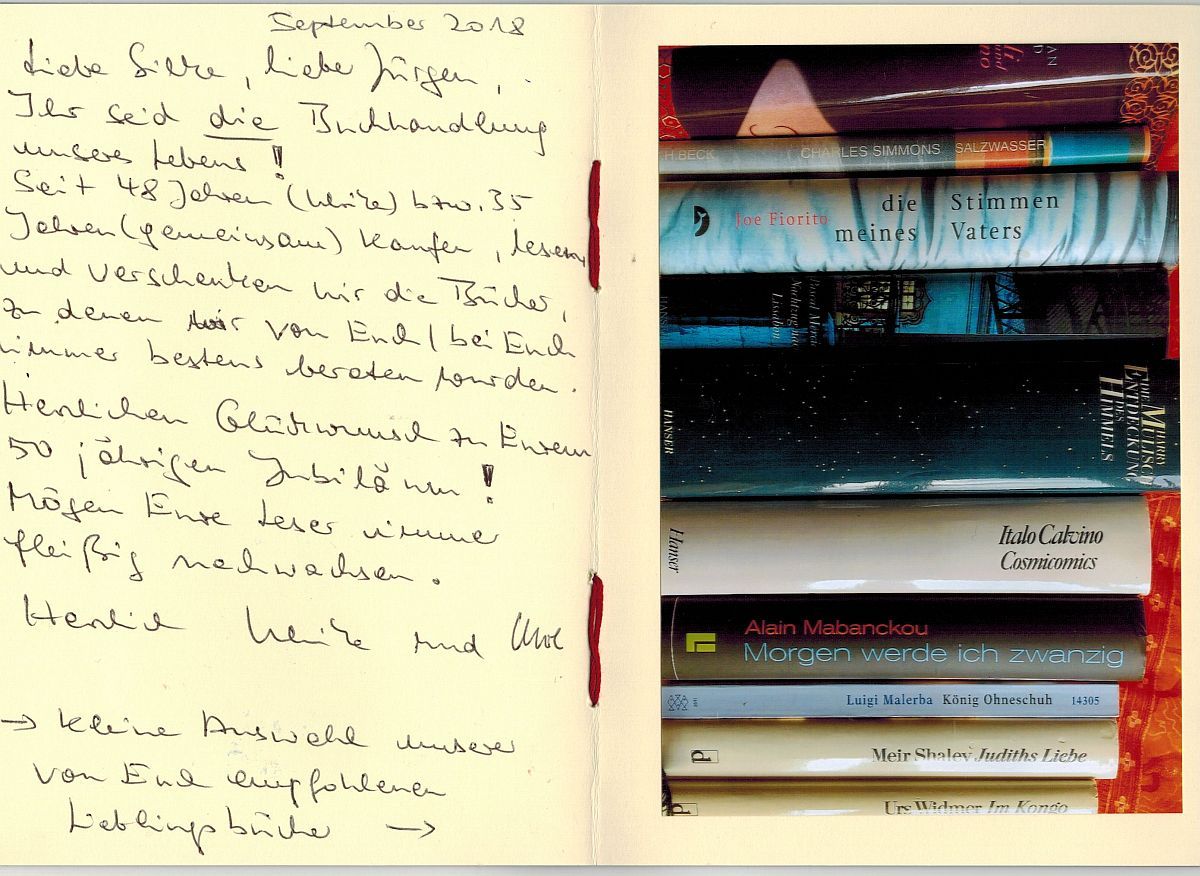 September 2018
Liebe Silke, liebe Jürgen,
Ihr seid die Buchhandlung
unseres Lebens!
Seit 48 Jahren (Ulrike) bzw. 35
Jahren (gemeinsam) kaufen, lesen
und verschenken wir die Bücher,
zu denen wir von Euch / bei Euch
immer bestens beraten wurden.
Herzlichen Glückwunsch zu Eurem
50 jährigen Jubiläum!
Mögen Eure Leser immer
fleißig nachwachsen.
Herzlich Ulrike und Uwe
→ kleine Auswahl unserer
von Euch empfohlenen
Lieblingsbücher →
H.BECK CHARLES SIMMONS SALZWASSER
Joe Fiorito die Stimmen
meines Vaters
Pascal Mercier
Nachtzug nach
Lissabon
HANSER
HARRY MULISCH
DIE ENTDECKUNG
DES HIMMELS
Hanser
Italo Calvino
Cosmicomics
Alain Mabanckou
Morgen werde ich zwanzig
Luigi Malerba König Ohneschuh 14305
d Meir Shalev Judiths Liebe
d Urs Widmer Im Kongo